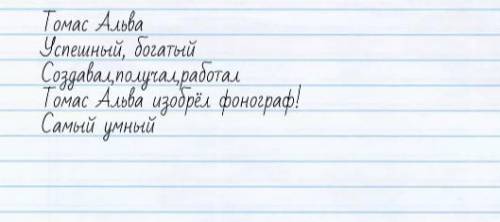 Томас Альва
Успешный, богатый
Создавал,получал,работал
Томас Альва изобрёл фонограф!
Самый умный